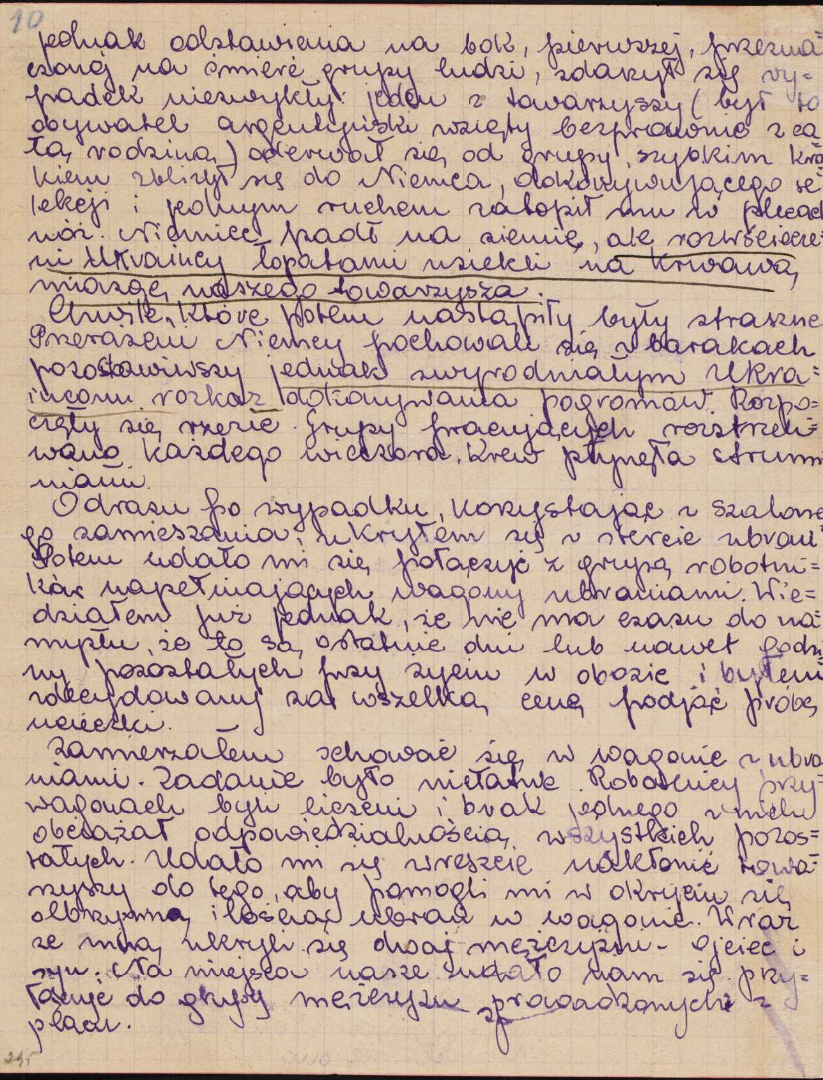 10
jednak odstawienia na bok, pierwszej, przezna=
czonej na śmierć grupy ludzi, zdarzył się wy-
padek niezwykły: jeden z towarzyszy (był to
obywatel argentyński wzięty bezprawnie z ca
łą rodziną) oderwał się od grupy, szybkim kro
kiem zbliżył się do Niemca, dokonywującego se
lekcji i jednym ruchem zatopił mu w plecach
nóż. Niemiec padł na ziemię, ale rozwściecze=
ni Ukraińcy łopatami usiekli na krwawą
miazgę naszego towarzysza.
Chwile, które potem nastąpiły były straszne
Przerażeni Niemcy pochowali się w barakach
pozostawiwszy jednak zwyrodniałym Ukra=
ińcom rozkaz dokonywania pogromów. Rozpo=
częły się rzezie. Grupy pracujących rozstrzeli=
wano każdego wieczora. Krew płynęła strum
niami.
Odrazu po wypadku, korzystając z szalone
go zamieszania, ukryłem się w stercie ubrań
Potem udało mi się połączyć z grupą robotni=
ków napełniających wagony ubraniami. Wie=
działem już jednak, że nie ma czasu do na=
mysłu, że to są ostatnie dni lub nawet godzi
ny pozostałych przy życiu w obozie i byłem
zdecydowany za wszelką cenę podjąć próbę
ucieczki.
Zamierzałem schować się w wagonie z ubra
niami. Zadanie było niełatwe. Robotnicy przy=
wagonach byli liczeni i brak jednego z nich
obciążał odpowiedzialnością wszystkich pozos=
tałych. Udało mi się wreszcie nakłonić towa=
rzyszy do tego, aby pomogli mi w okryciu się
olbrzymią ilością ubrań w wagonie. Wraz
ze mną ukryli się dwaj mężczyźni - ojciec i
syn. Na miejsca nasze udało nam się przy=
łączyć do grupy mężczyzn sprowadzonych z
placu.